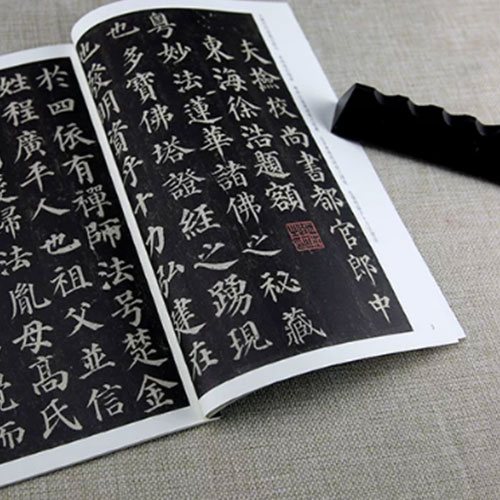 夫撿挍尚書都官郎中
東海徐浩題額
粵妙法蓮華諸佛之祕藏
也多寶佛塔證經之踴現
也發明資乎十力弘建在
於四依有禪師法号楚金
姓程廣平人也祖父並信
歸法胤母高氏
覺而